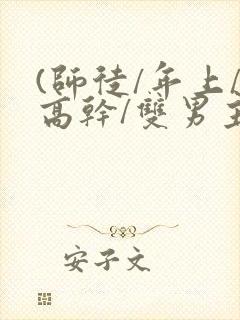 (師徒/年上/
高幹/雙男主
安子文